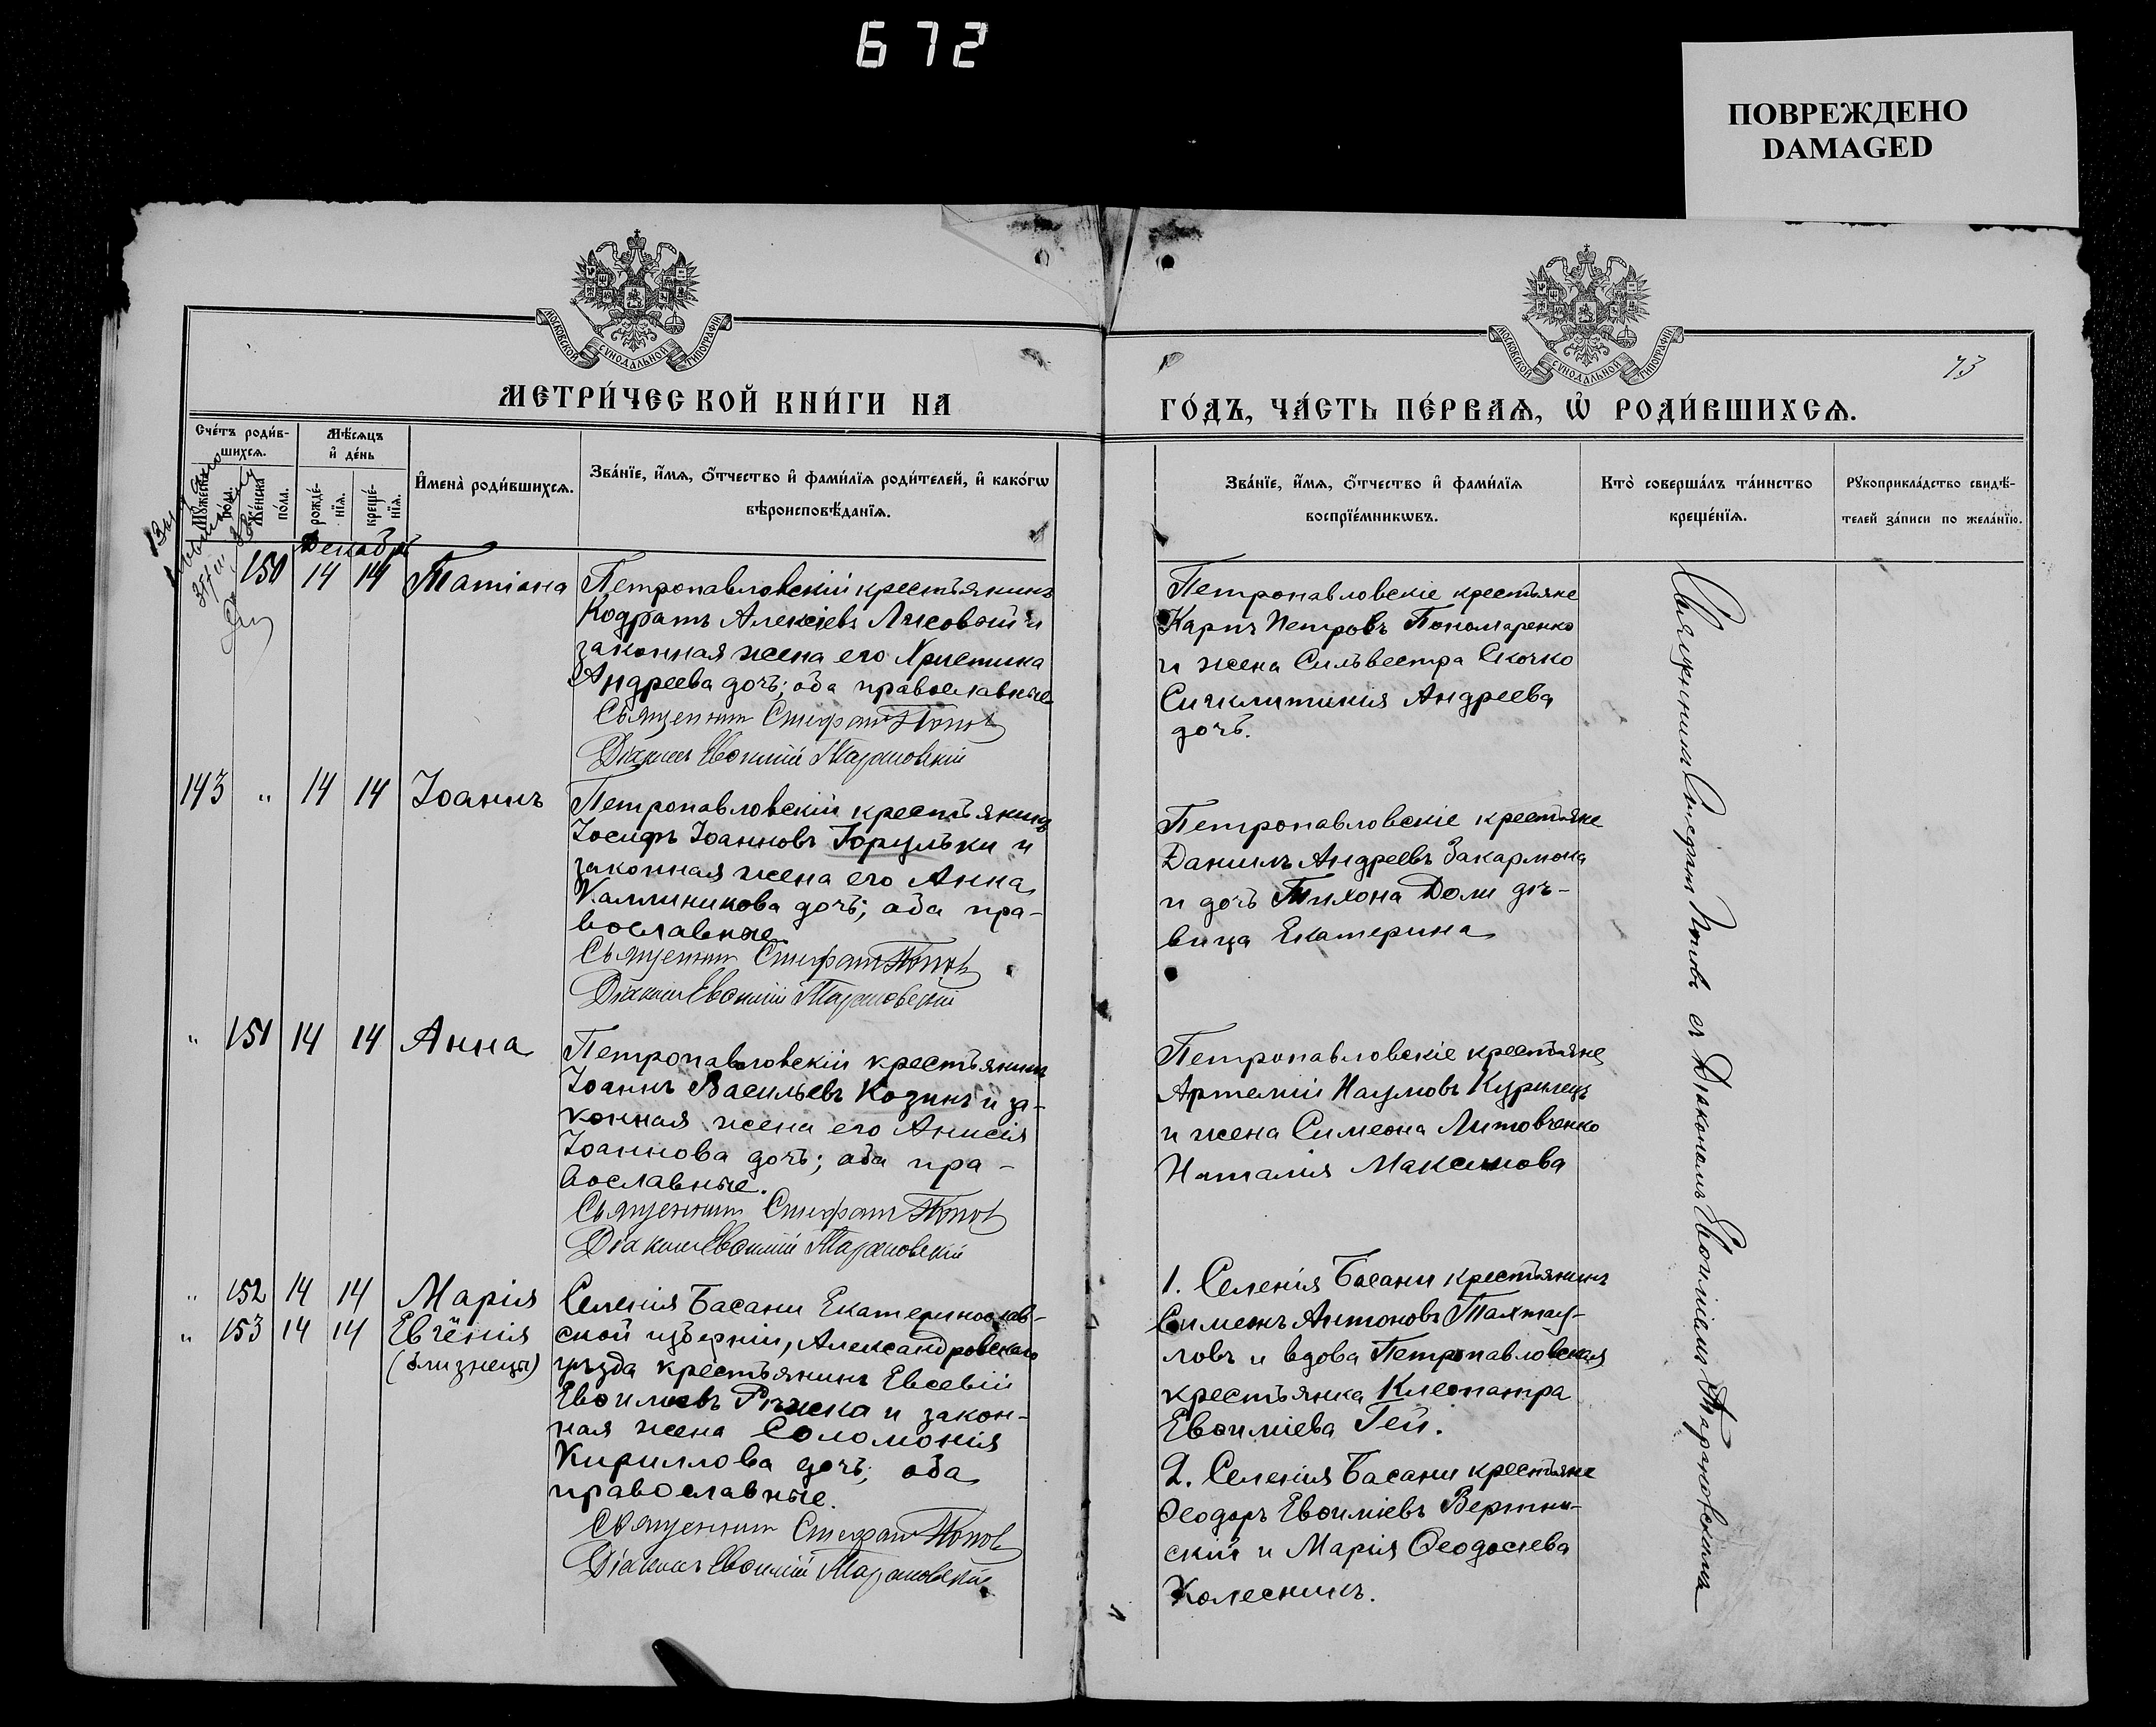 672
ПОВРЕЖДЕНО
DAMAGED
МОСКОВСКОЙ СѴНОДАЛЬНОЙ ТИПОГРАФІИ
МОСКОВСКОЙ СѴНОДАЛЬНОЙ ТИПОГРАФІИ
73
МЕТРИ́ЧЕСКОЙ КНИ́ГИ НА
ГО́ДЪ, ЧА́СТЬ ПЕ́РВАѦ, Ѡ҆ РОДИ́ВШИХСѦ.
Сче́тъ роди́в-
шихсѧ.
Мѣ́сѧцъ
и҆ де́нь
Мꙋжеска
по́ла.
Же́нска
по́ла.
рожде́-
нїѧ.
креще́-
нїѧ.
И҆мена̀ роди́вшихсѧ.
Зва́нїе, и҆́мѧ, ѻ҆́тчество и҆ фами́лїѧ роди́телей, и҆ како́гѡ
вѣроисповѣ́данїѧ.
Зва́нїе, и҆́мѧ, ѻ҆́тчество и҆ фами́лїѧ
воспрїе́мникѡвъ.
Кто̀ соверша́лъ та́инство
креще́нїѧ.
Рꙋкоприкла́дство свидѣ́-
телей за́писи по жела́нїю.
Декабрь
150 14 14 Татіана
Петропавловскій крестьянинъ
Кодратъ Алексіевъ Лисовый и
законная жена его Христина
Андреева дочь; оба православные
Священникъ Стефанъ Поповъ
Діаконъ Евѳимій Тарановскій
Петропавловскіе крестьяне
Карпъ Петровъ Пономаренко
и жена Сильвестра Скочко
Синклитикія Андреева
дочь.
143 " 14 14 Іоаннъ
Петропавловскій крестьянинъ
Іосифъ Іоанновъ Горулька и
законная жена его Анна
Каллиникова дочь; оба пра-
вославные
Священникъ Стефанъ Поповъ
Діаконъ Евѳимій Тарановскій
Петропавловскіе крестьяне
Даниилъ Андреевъ Закармона
и дочь Тихона Доли дѣ-
вица Екатерина
" 151 14 14 Анна
Петропавловскій крестьянинъ
Іоаннъ Васильевъ Козинъ и за-
конная жена его Анисія
Іоаннова дочь; оба пра-
вославные.
Священникъ Стефанъ Поповъ
Діаконъ Евѳимій Тарановскій
Петропавловскіе крестьяне
Артемій Наумовъ Куринецъ
и жена Симеона Литовченко
Наталія Максимова
" 152 14 14 Марія
" 153 14 14 Евгенія
(близнецы)
Селенія Басани Екатеринослав-
ской губерніи, Александровскаго
уѣзда крестьянинъ Евсевій
Евѳиміевъ Ряжска и закон-
ная жена Соломонія
Кириллова дочь; оба
православные.
Священникъ Стефанъ Поповъ
Діаконъ Евѳимій Тарановскій
1. Селенія Басани крестьянинъ
Симеонъ Антоновъ Тахтау-
ловъ и вдова Петропавловская
крестьянка Клеопатра
Евѳиміева Гей.
2. Селенія Басани крестьяне
Ѳеодоръ Евѳиміевъ Вертин-
скій и Марія Ѳеодосіева
Колесникъ.
Священникъ Стефанъ Поповъ съ Діакономъ Евѳиміемъ Тарановскимъ